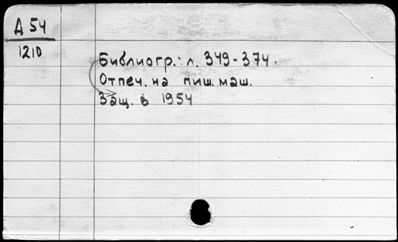 Д 54
1210
Библиогр.: л. 349-374.
Отпеч. на пиш. маш.
Защ. в 1954